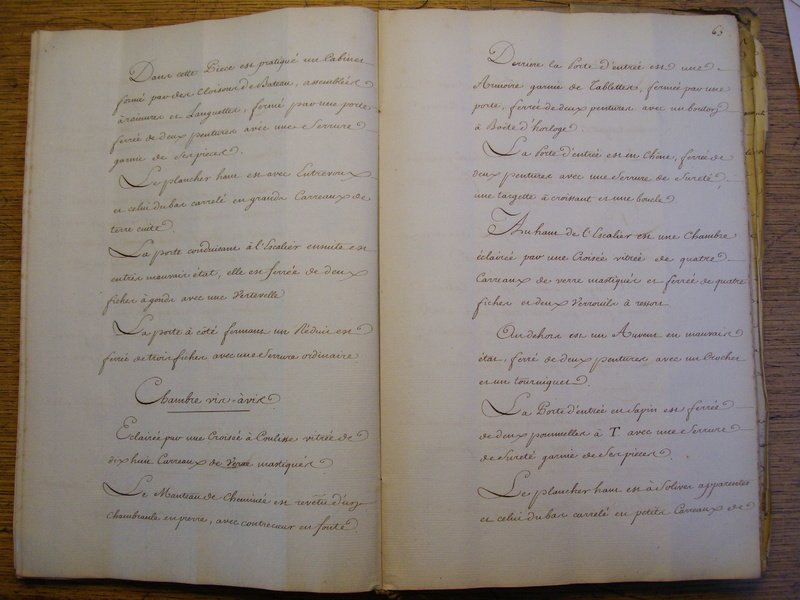 Dans cette Piece est pratiqué un Cabinet
formé par des Cloisons de Bateau, assemblées
à rainures et Languettes, formé par une porte
ferrée de deux pentures avec une Serrure
garnie de Ses pieces.
Le plancher haut est avec Entrevoux
et celui du bas carrelé en grands Carreaux de
terre cuite.
La porte conduisant à l'Escalier ensuite est
en très mauvais état, elle est ferrée de deux
fiches à gonds avec une Verteville
La porte à côté formant un Réduit est
ferrée de trois fiches avec une Serrure ordinaire
Chambre vis-à-vis
Eclairée par une Croisée à Coulisse vitrée de
dix huit Carreaux de Verre mastiqués
Le Manteau de Cheminée est revêtu d'un
chambranle en pierre, avec contrecoeur en fonte
63
Derriere la Porte d'entrée est une
Armoire garnie de Tablettes, fermée par une
porte, ferrée de deux pentures avec un bouton
à Boête d'horloge.
La Porte d'entrée est en Chêne, ferrée de
deux pentures avec une Serrure de Sureté,
une targette à croissant et une boucle.
Au haut de l'Escalier est une Chambre
éclairée par une Croisée vitrée de quatre
Carreaux de verre mastiqués et ferrée de quatre
fiches et deux Verrouils à ressort
Au dehors est un Auvent en mauvais
état, ferré de deux pentures avec un Crochet
et un tourniquet.
La Porte d'entrée en Sapin est ferrée
de deux poumelles à T avec une Serrure
de Sureté garnie de Ses pieces.
Le plancher haut est à Solives apparentes
et celui du bas carrelé en petits Carreaux de